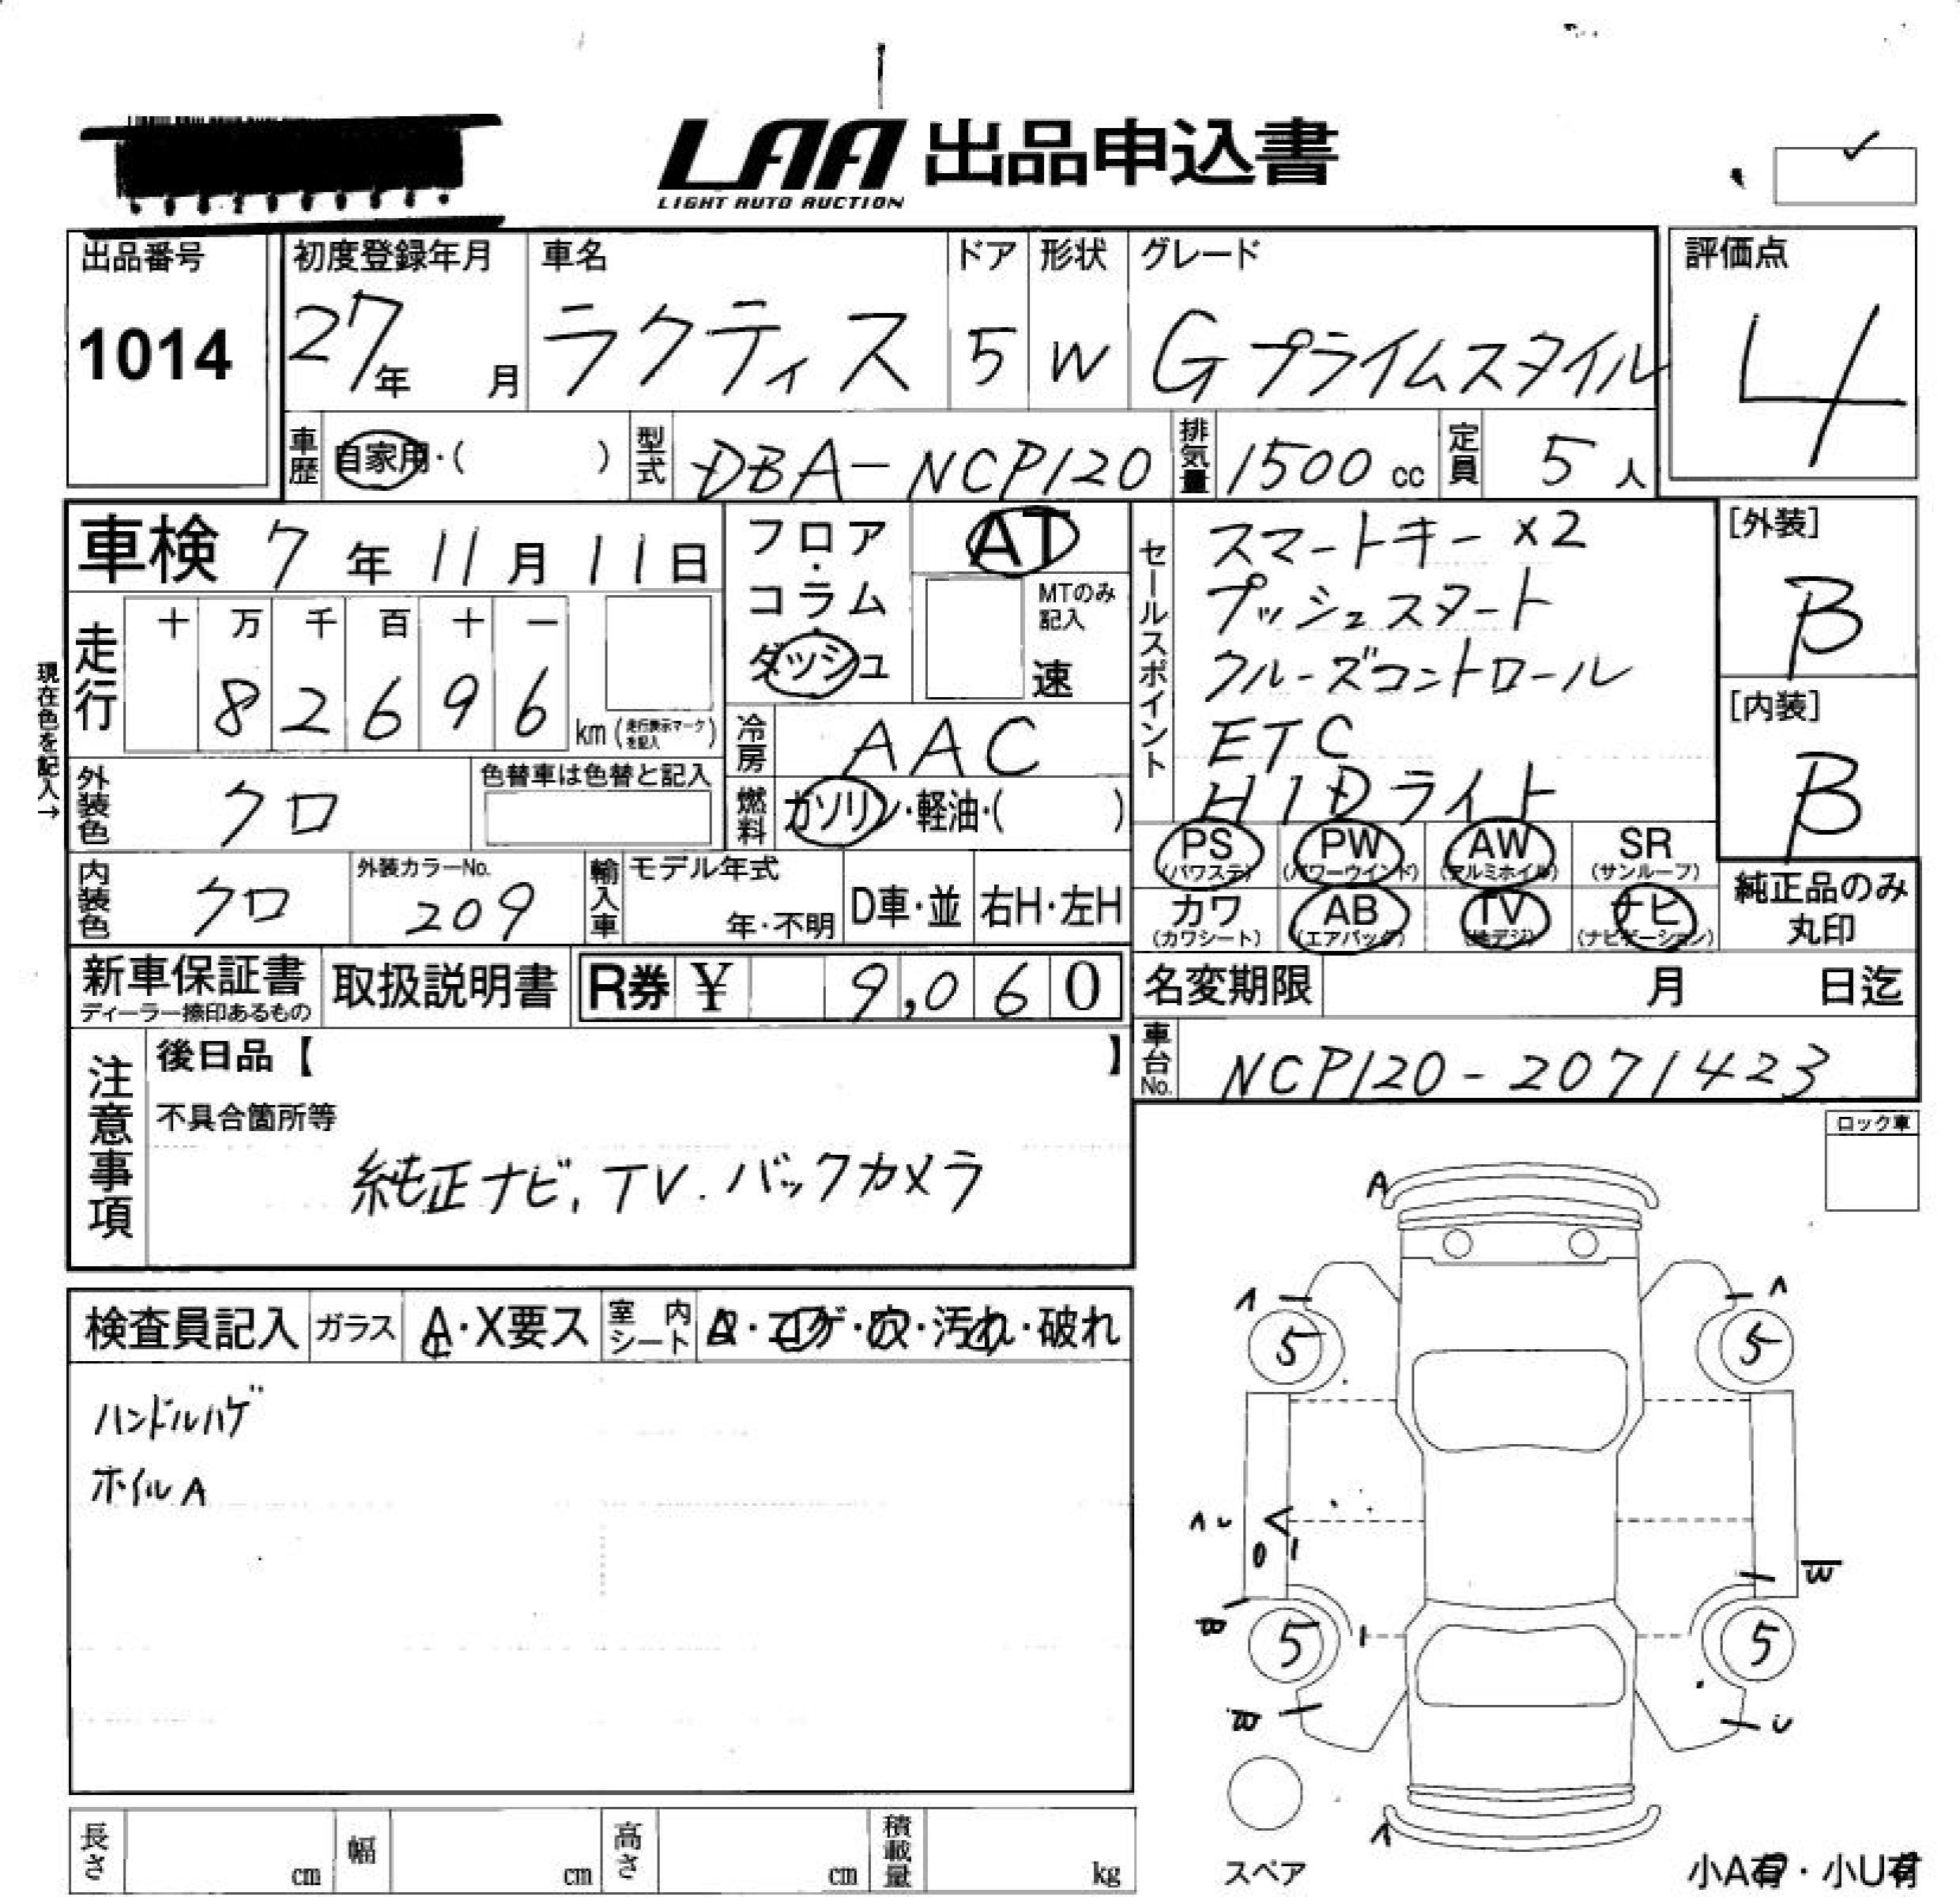 LAA 出品申込書
LIGHT AUTO AUCTION
出品番号 初度登録年月 車名 ドア 形状 グレード 評価点
1014 27年 月 ラクティス 5 W Gプライムスタイル 4
車歴 自家用・( ) 型式 DBA-NCP120 排気量 1500 cc 定員 5 人
車検 7年11月11日
フロア・コラム・ダッシュ AT
MTのみ記入 速
セールスポイント
スマートキー×2
プッシュスタート
クルーズコントロール
ETC
HIDライト
[外装]
B
[内装]
B
現在色を記入→
走行 十 万 千 百 十 一
8 2 6 9 6 km (走行表示マークを記入)
冷房 AAC
外装色 クロ 色替車は色替と記入
燃料 ガソリン・軽油・( )
PS (パワステ) PW (パワーウインド) AW (アルミホイル) SR (サンルーフ)
カワ (カワシート) AB (エアバック) TV (地デジ) ナビ (ナビゲーション)
純正品のみ丸印
内装色 クロ 外装カラーNo. 209 輸入車 モデル年式 年・不明 D車・並 右H・左H
新車保証書 ディーラー捺印あるもの 取扱説明書 R券 ¥ 9,060
名変期限 月 日迄
車台No. NCP120-2071423
注意事項 後日品【 】
不具合箇所等
純正ナビ、TV.バックカメラ
ロック車
検査員記入 ガラス A・X要ス 室内シート ・コゲ・穴・汚れ・破れ
ハンドルハゲ
ホイルA
A
5 5
W
5 5
U
スペア
小A有・小U有
長さ cm 幅 cm 高さ cm 積載量 kg